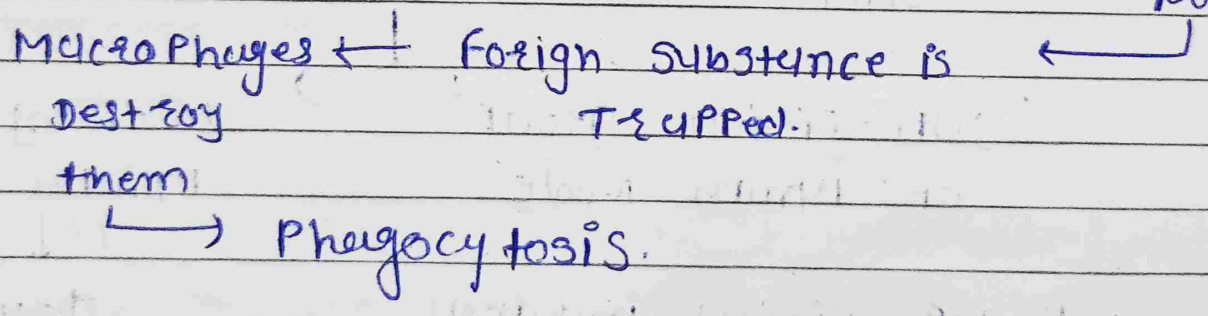 Macrophages ← Forign substance is ←
Destroy Trapped.
them
→ Phagocytosis.